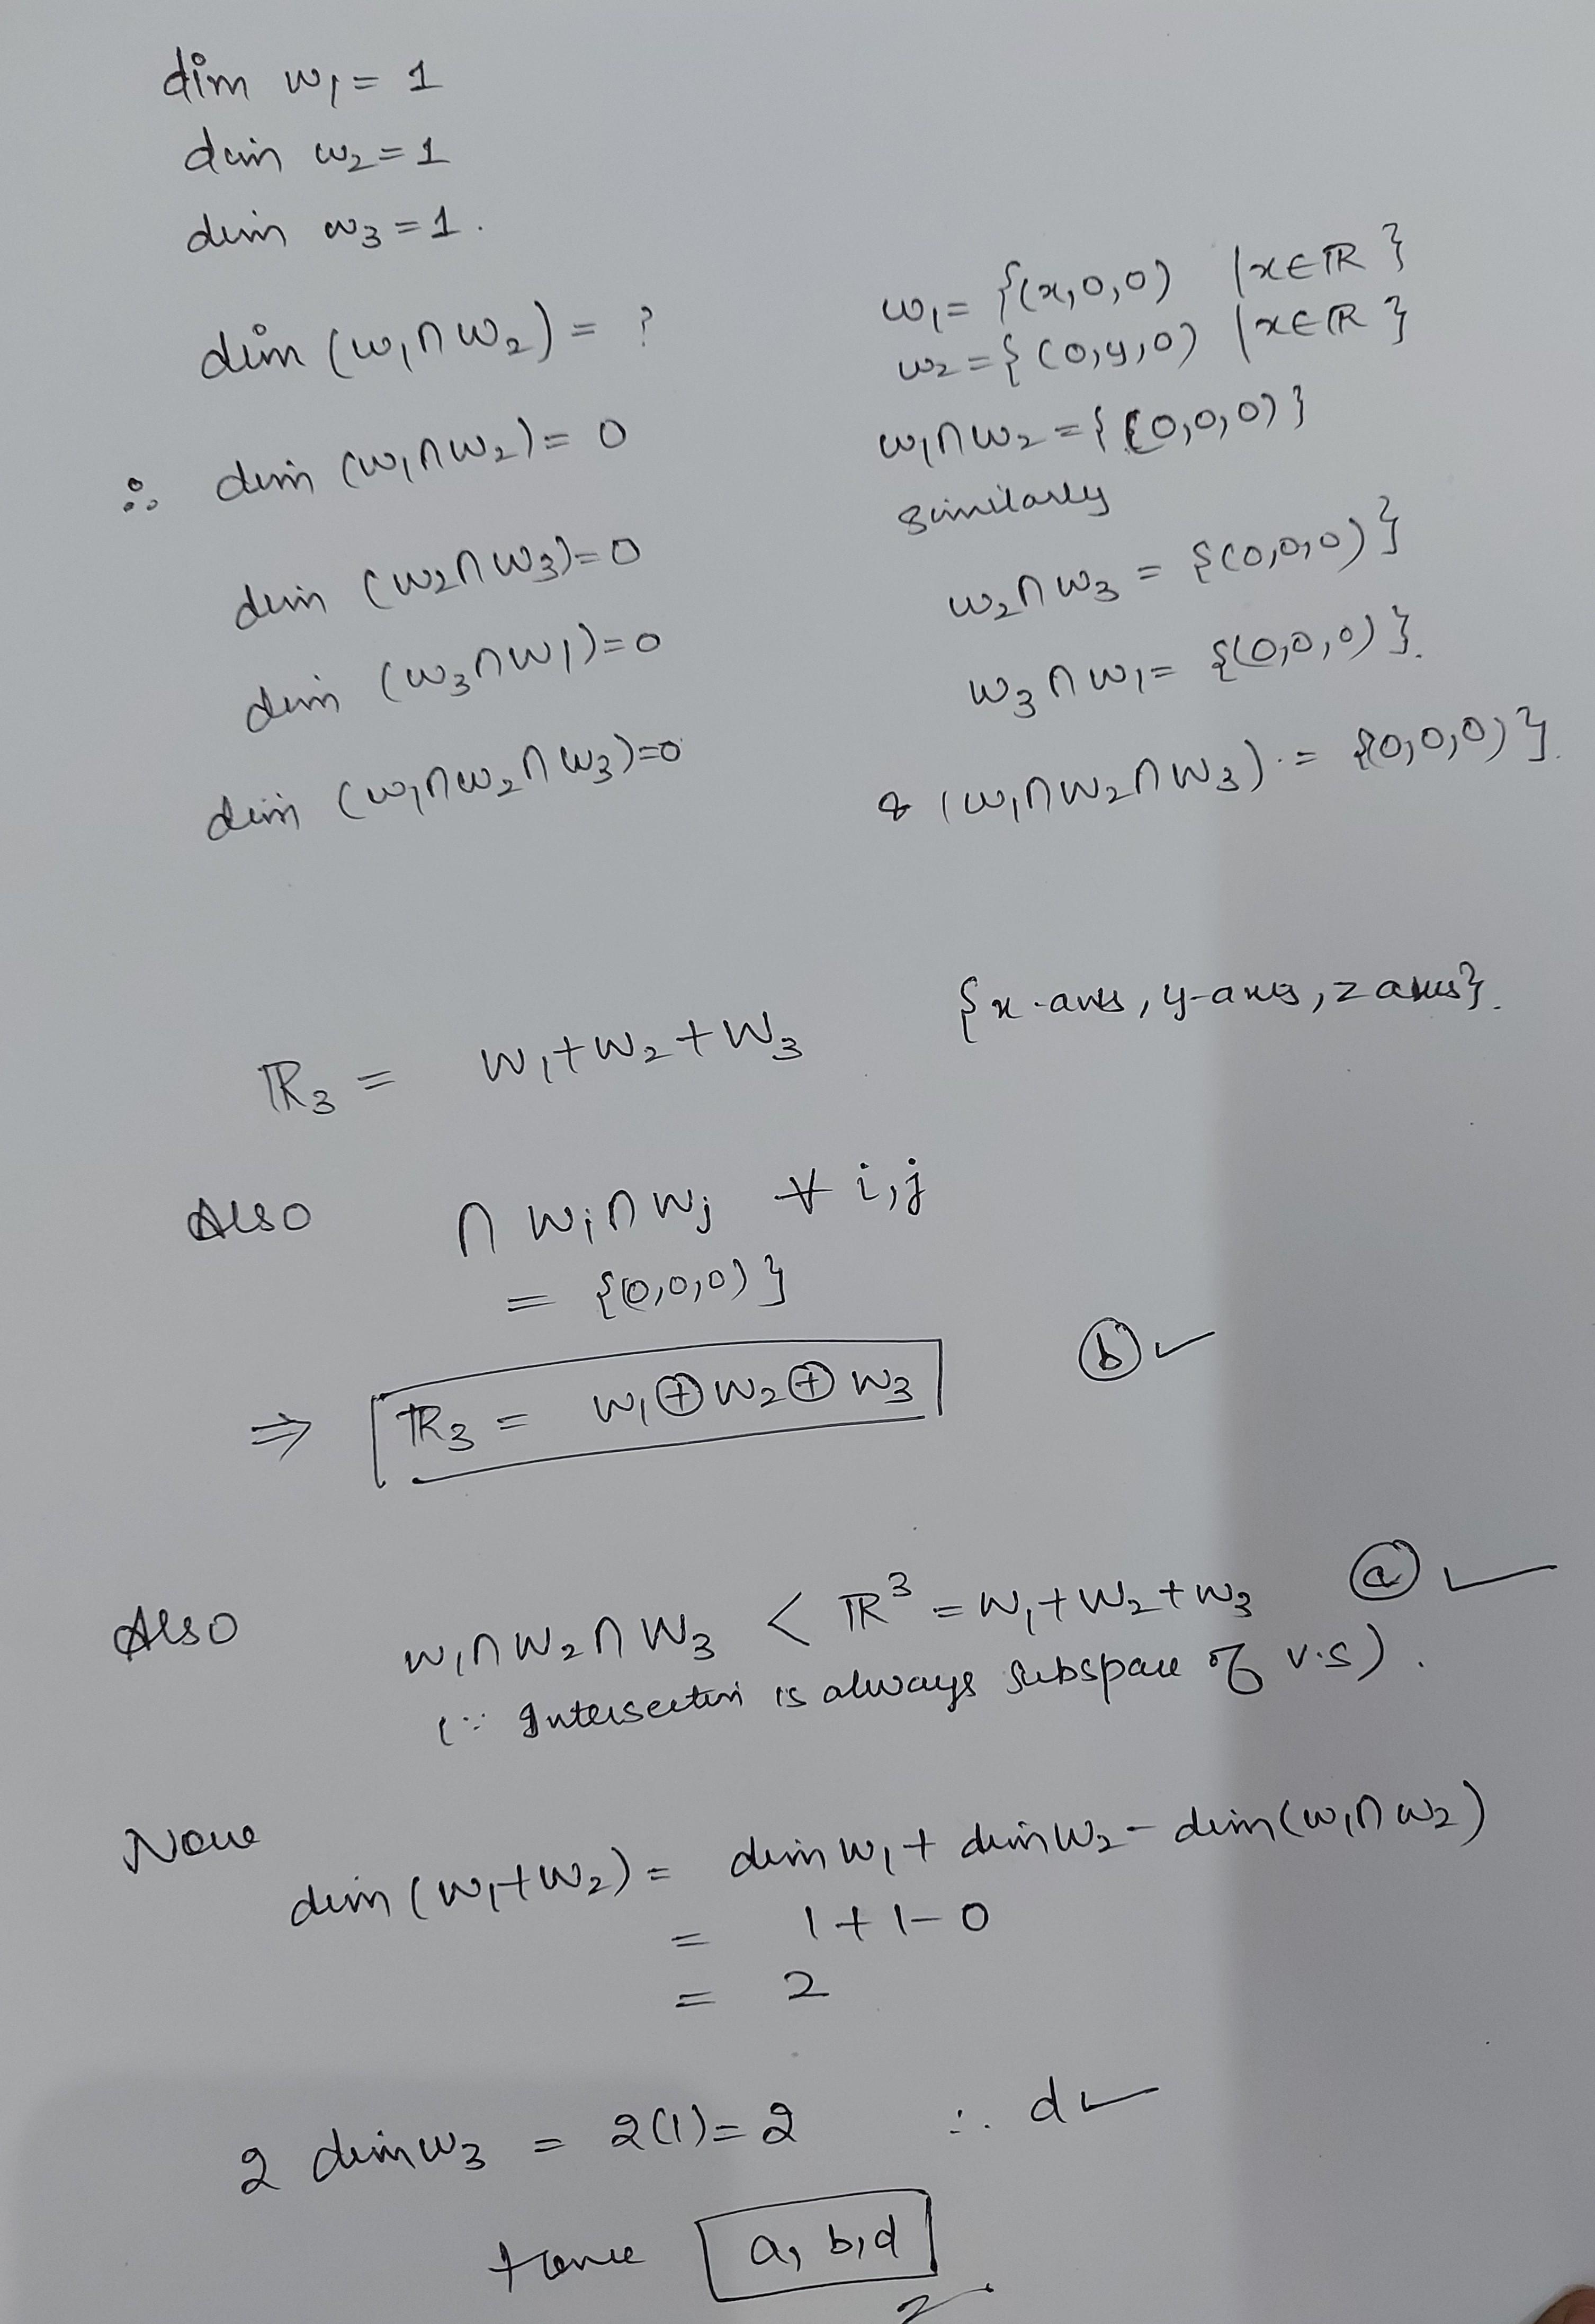 dim w₁ = 1
dim w₂ = 1
dim w₃ = 1.
dim (w₁∩w₂) = ?
w₁ = {(x,0,0) |x∈ℝ}
w₂ = {(0,y,0) |x∈ℝ}
∴ dim (w₁∩w₂) = 0
w₁∩w₂ = {(0,0,0)}
similarly
dim (w₂∩w₃) = 0
w₂∩w₃ = {(0,0,0)}
dim (w₃∩w₁) = 0
w₃∩w₁ = {(0,0,0)}.
dim (w₁∩w₂∩w₃) = 0
& (w₁∩w₂∩w₃) = {(0,0,0)}.
ℝ₃ = w₁+w₂+w₃ {x-axis, y-axis, z axis}.
Also ∩ wᵢ∩wⱼ ∀ i,j
= {(0,0,0)}
⇒ ℝ₃ = w₁⊕w₂⊕w₃ ⓑ ✓
Also w₁∩w₂∩w₃ < ℝ³ = w₁+w₂+w₃ ⓐ ✓
(∵ Intersection is always subspace of v.s).
Now
dim (w₁+w₂) = dim w₁ + dim w₂ - dim (w₁∩w₂)
= 1+1-0
= 2
2 dim w₃ = 2(1) = 2 ∴ d ✓
Hence a, b, d